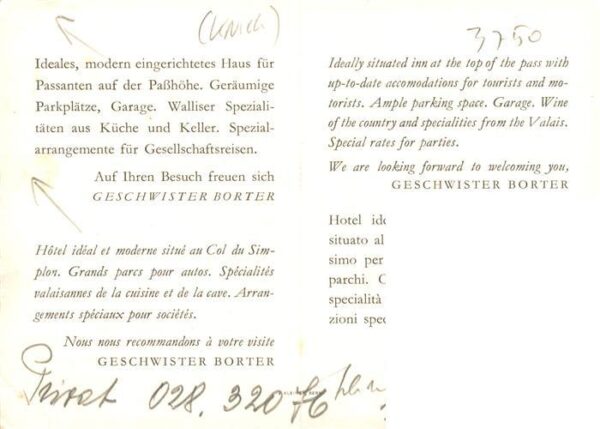 Ideales, modern eingerichtetes Haus für
Passanten auf der Paßhöhe. Geräumige
Parkplätze, Garage. Walliser Speziali-
täten aus Küche und Keller. Spezial-
arrangemente für Gesellschaftsreisen.
Auf Ihren Besuch freuen sich
GESCHWISTER BORTER
Hôtel idéal et moderne situé au Col du Sim-
plon. Grands parcs pour autos. Spécialités
valaisannes de la cuisine et de la cave. Arran-
gements spéciaux pour sociétés.
Nous nous recommandons à votre visite
GESCHWISTER BORTER
Privat 028. 320 76
3750
Ideally situated inn at the top of the pass with
up-to-date accomodations for tourists and mo-
torists. Ample parking space. Garage. Wine
of the country and specialities from the Valais.
Special rates for parties.
We are looking forward to welcoming you,
GESCHWISTER BORTER
Hotel ide
situato al
simo per
parchi. C
specialità
zioni spec